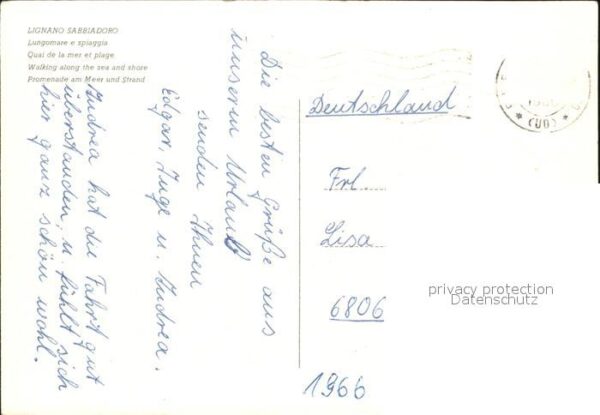 LIGNANO SABBIADORO
Lungomare e spiaggia
Quai de la mer et plage
Walking along the sea and shore
Promenade am Meer und Strand
Die besten Grüße aus
unserm Urlaub
senden Ihnen
Edgar, Inge u. Andrea.
Andrea hat die Fahrt gut
überstanden, u. fühlt sich
hier ganz schön wohl.
Deutschland
Frl.
Lisa
6806
1966
privacy protection
Datenschutz
(UD)